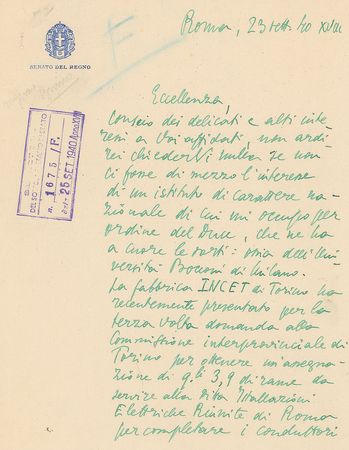 Roma, 23 sett. 40 XVIII
SENATO DEL REGNO
Eccellenza,
Conscio dei delicati e alti inte
ressi a Voi affidati, non ardi
rei chiederVi nulla se non
ci fosse di mezzo l'interesse
di un istituto di carattere na
zionale di cui mi occupo per
ordine del Duce, che ne ha
a cuore le sorti: ossia dell'Uni
versità Bocconi di Milano.
La fabbrica INCET di Torino ha
recentemente presentato per la
terza volta domanda alla
Commissione interprovinciale di
Torino per ottenere un'assegna
zione di q.li 3,9 di rame da
servire alla ditta Istallazioni
Elettriche Riunite di Roma
per completare i conduttori
n. 1675/R.
25 SET. 1940 Anno XVIII